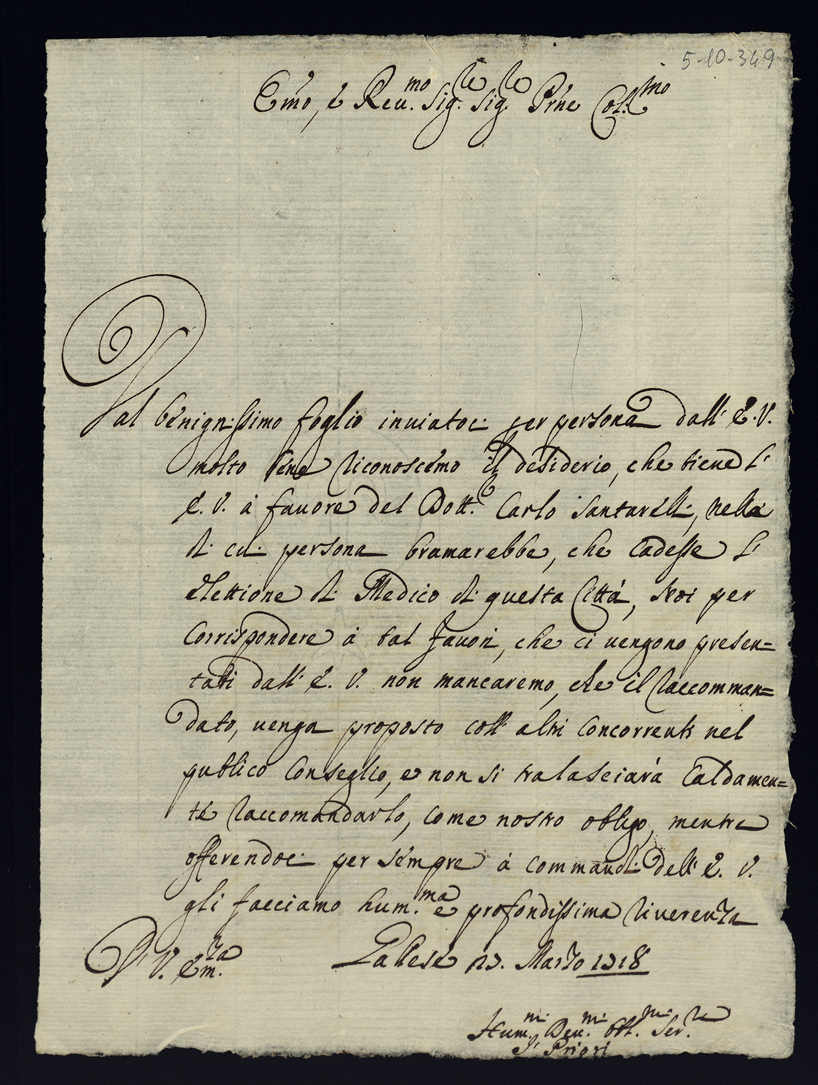 5-10-349
Em̃o, è Reu.mo Sig.re Sig.re P̃rne Col.mo
Dal benignissimo foglio inuiatoci per persona dall' E.V.
molto bene riconoscemo il desiderio, che tiene l'
E.V. à fauore del Dott.e Carlo Santarelli, nella
di cui persona bramarebbe, che cadesse l'
elettione di Medico di questa Città, Noi per
corrispondere à tal fauori, che ci vengono presen=
tati dall' E. V. non mancaremo, che il raccoman=
dato, venga proposto coll' altri Concorrenti nel
publico Conseglio, e non si tralasciarà caldamen=
te raccomandarlo, come nostro obligo, mentre
offerendoci per sempre à commandi dell' E. V.
gli facciamo hum.ma e profondissima riverenza
Di V. Em.za Gallese 23. Marzo 1718
Hum.mi Deu.mi Obl.mi Ser.re
I Priori